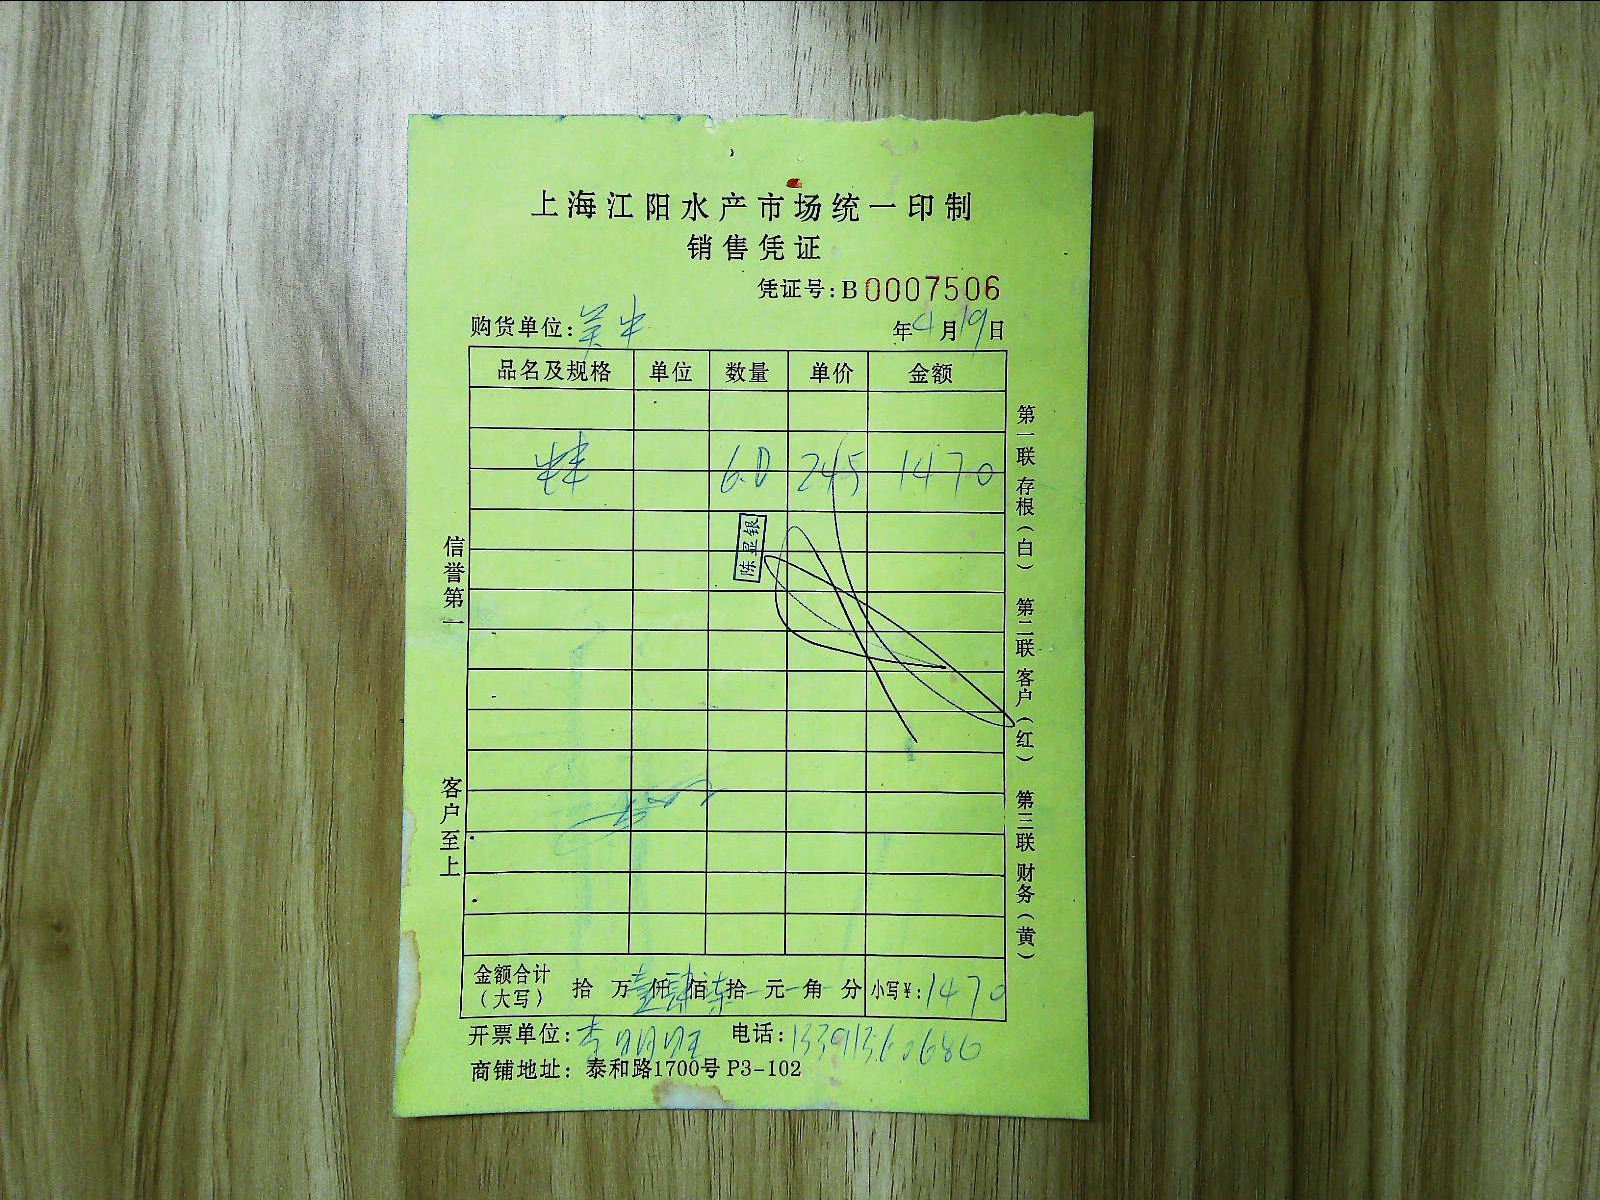 上海江阳水产市场统一印制
销售凭证
凭证号:B 0007506
购货单位:
年4月19日
品名及规格 单位 数量 单价 金额
6.0 245 1470
陈显银
信誉第一
客户至上
第一联 存根(白) 第二联 客户(红) 第三联 财务(黄)
金额合计(大写) 拾 万壹仟肆佰柒拾 元 角 分 小写¥:1470
开票单位:李明旺 电话:13391360686
商铺地址: 泰和路1700号 P3-102